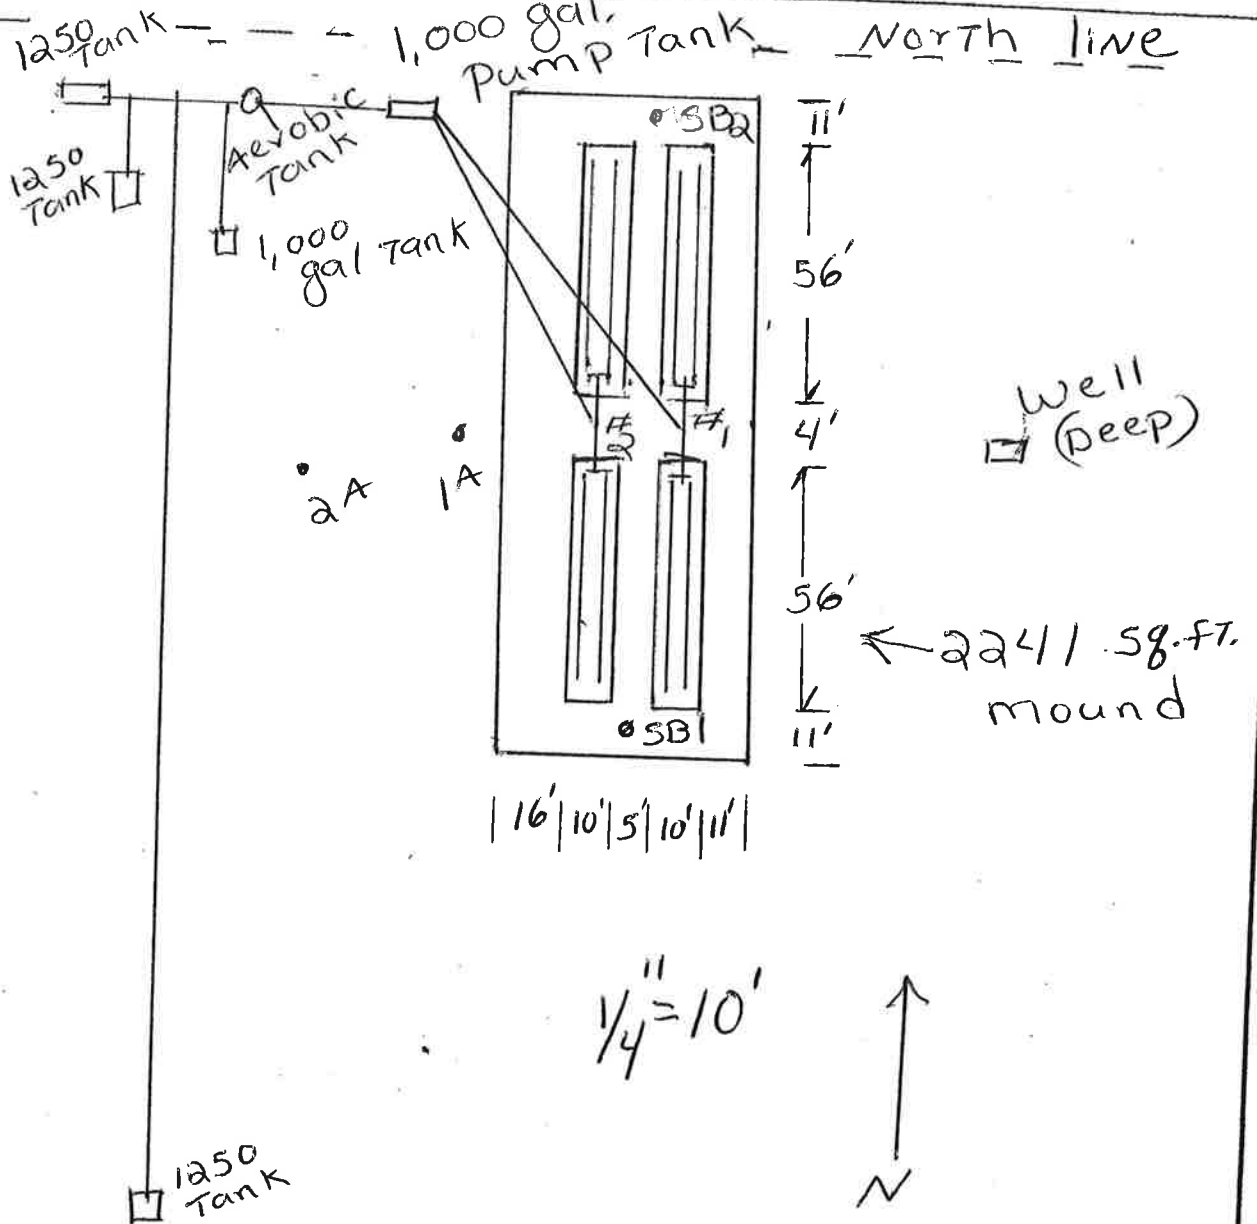 1250
Tank
1,000 gal.
Pump Tank
North line
Aerobic
Tank
1250
Tank
1,000
gal Tank
SB2
11'
56'
4'
56'
11'
#2
#1
Well
(Deep)
2A
1A
2241 sq.ft.
mound
SB1
16' 10' 5' 10' 11'
1/4" = 10'
N
1250
Tank